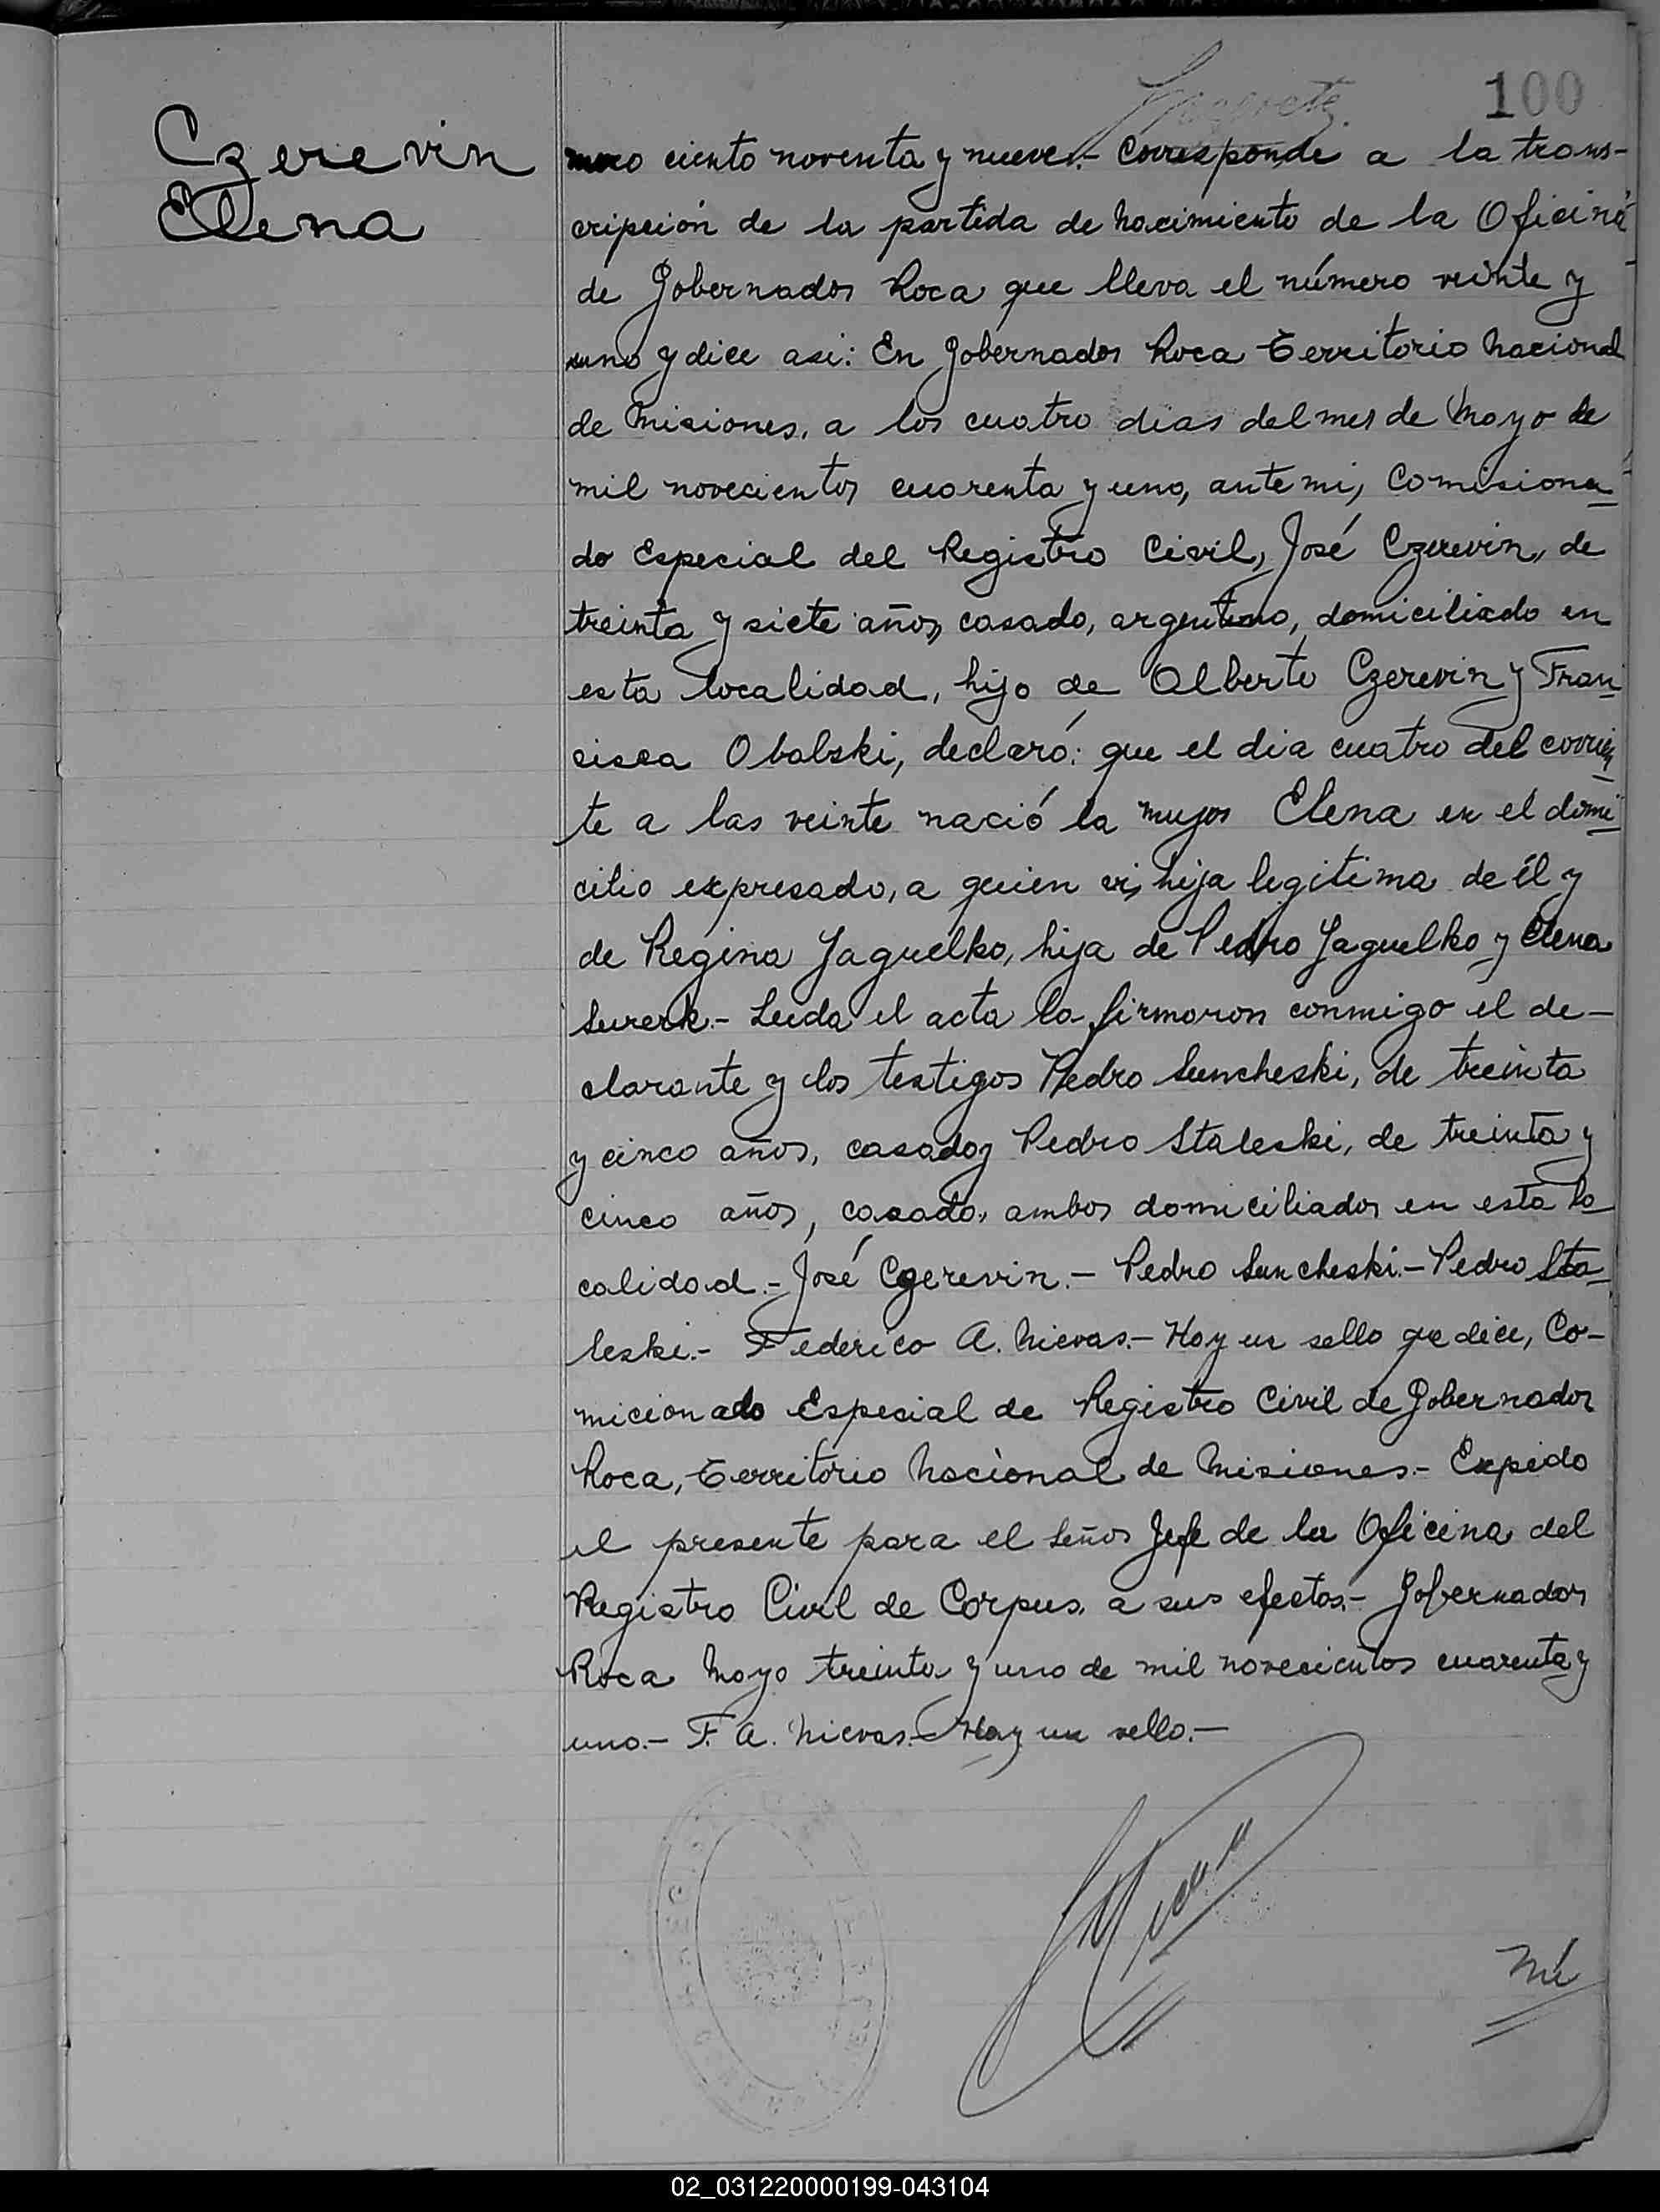 100
Czerevin
Elena
mero ciento noventa y nueve.- Corresponde a la trans-
cripción de la partida de nacimiento de la Oficina
de Gobernador Roca que lleva el número veinte y
uno y dice asi: En Gobernador Roca Territorio Nacional
de Misiones, a los cuatro dias del mes de Mayo de
mil novecientos cuarenta y uno, ante mi, Comisiona-
do Especial del Registro Civil, José Czerevin, de
treinta y siete años, casado, argentino, domiciliado en
esta localidad, hijo de Alberto Czerevin y Fran-
cisca Obalski, declaró: que el dia cuatro del corrien-
te a las veinte nació la mujer Elena en el domi-
cilio expresado, a quien vi, hija legitima de él y
de Regina Jaguelko, hija de Pedro Jaguelko y Elena
Surerk.- Leida el acta la firmaron conmigo el de-
clarante y los testigos Pedro Suncheski, de treinta
y cinco años, casado y Pedro Staleski, de treinta y
cinco años, casado, ambos domiciliados en esta lo-
calidad.- José Czerevin.- Pedro Suncheski.- Pedro Sta-
leski.- Federico A. Nievas.- Hay un sello que dice, Co-
micionado Especial de Registro Civil de Gobernador
Roca, Territorio Nacional de Misiones.- Expido
el presente para el Señor Jefe de la Oficina del
Registro Civil de Corpus, a sus efectos.- Gobernador
Roca Mayo treinta y uno de mil novecientos cuarenta y
uno.- F. A. Nievas.- Hay un sello.-
Nú
02_031220000199-043104